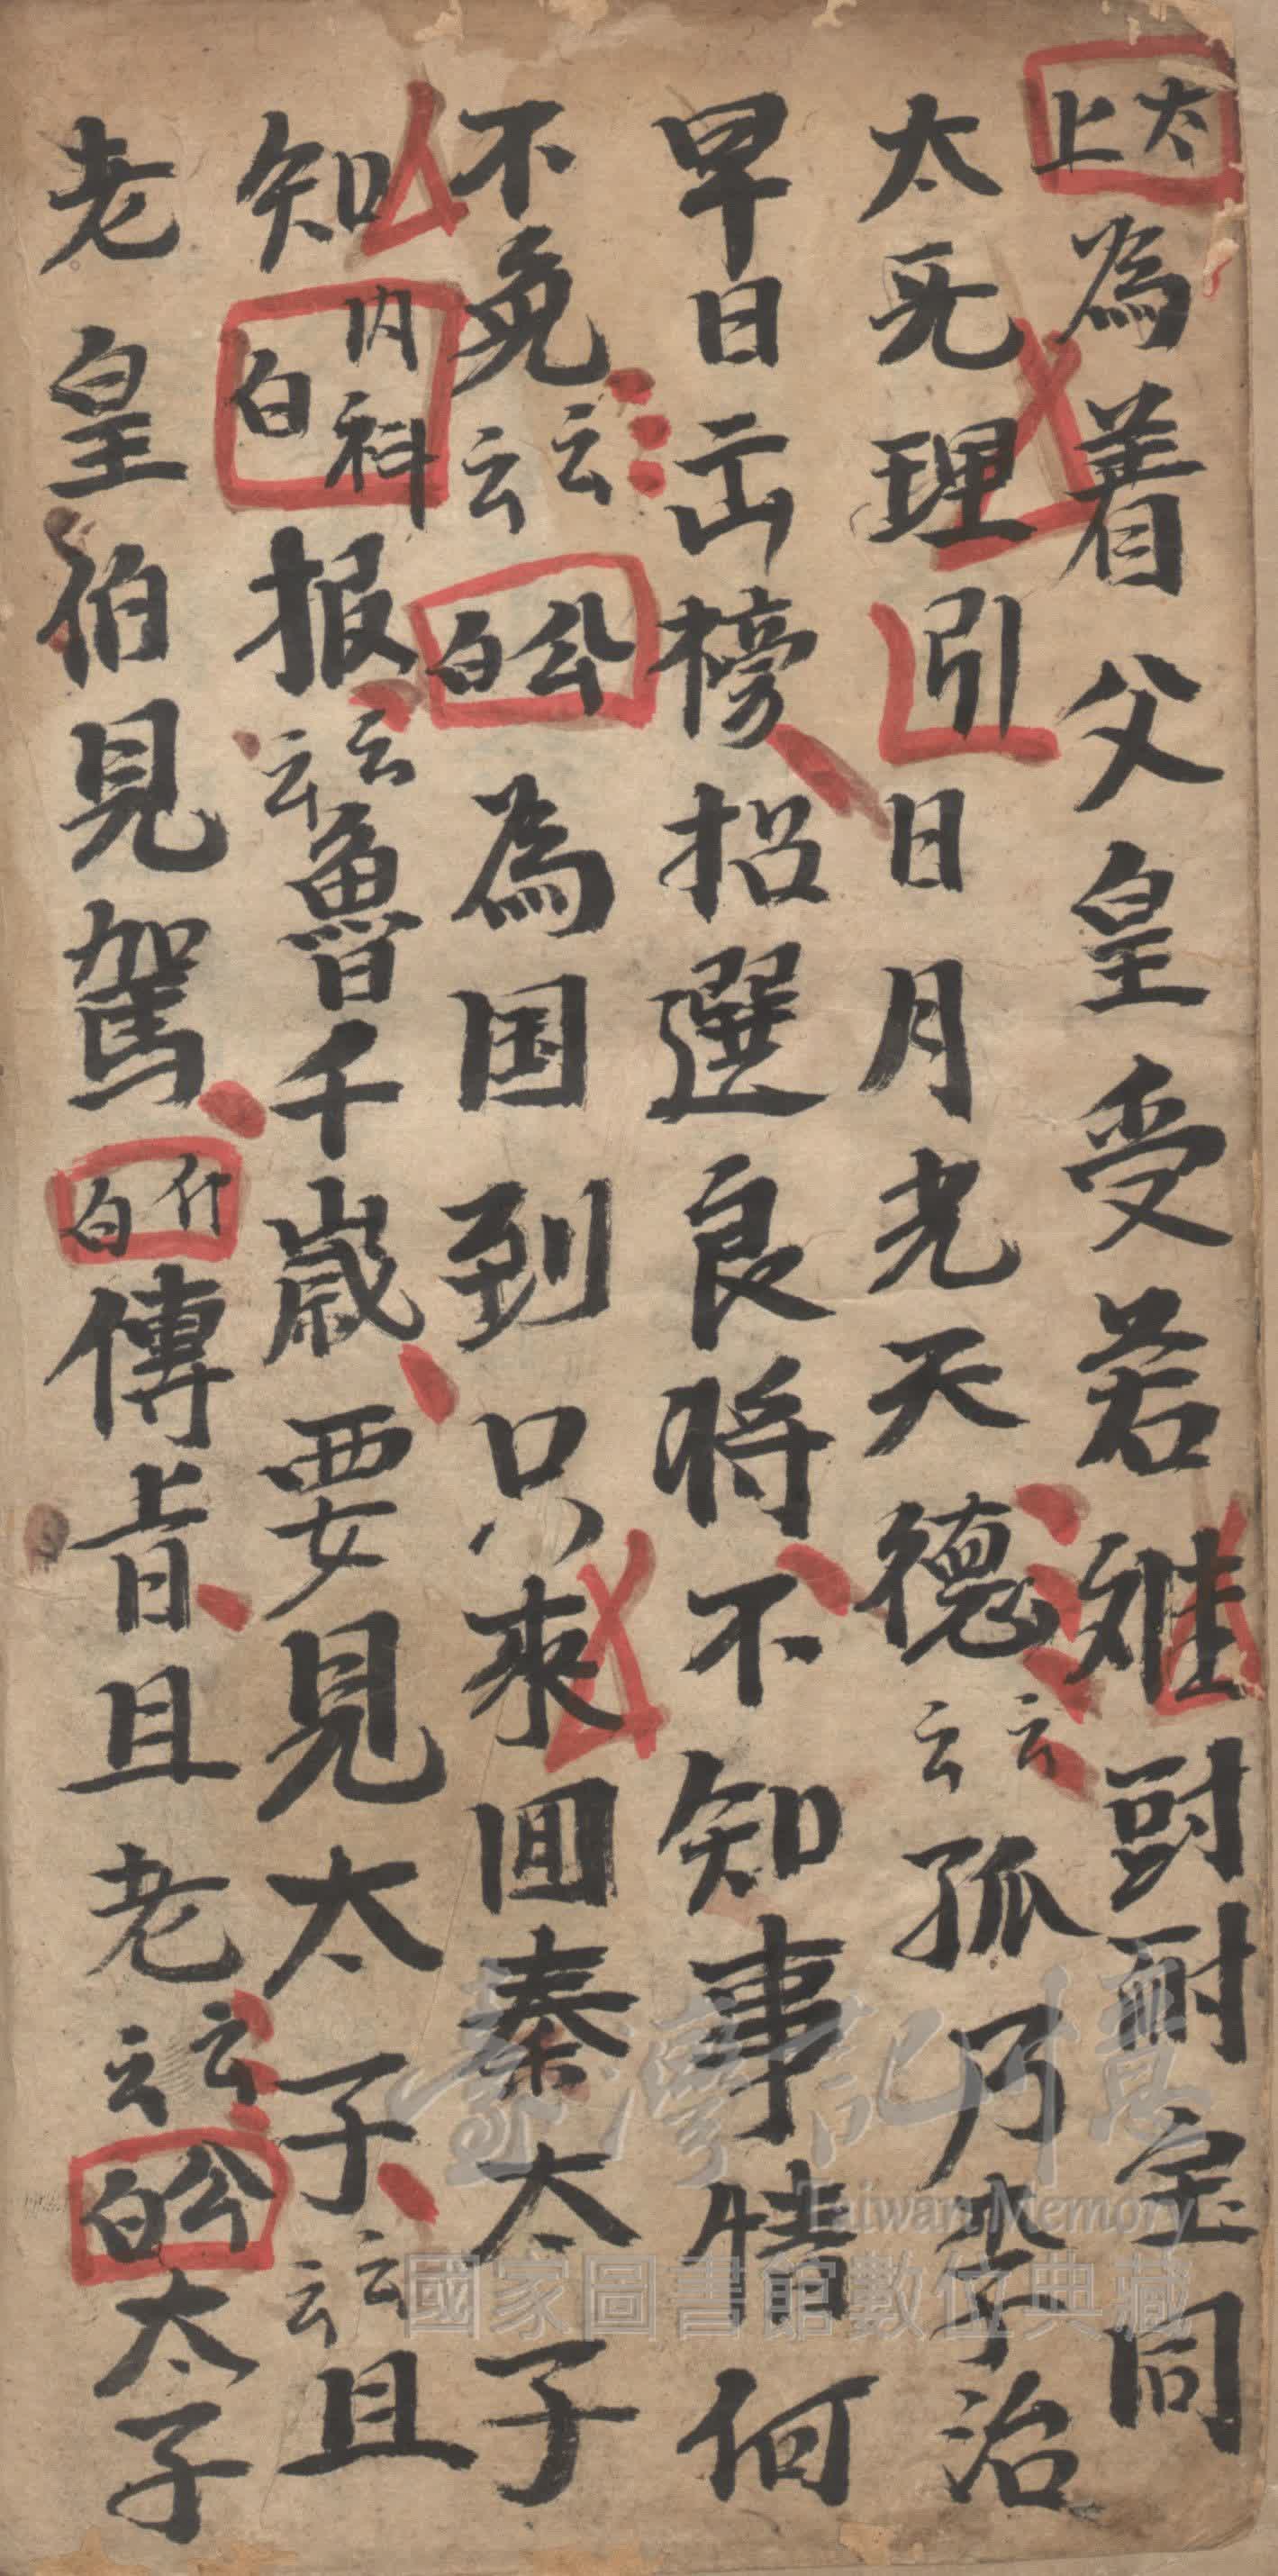 太上為着父皇受若难尀耐宝同
太无理引日月光天德云云孤乃李治
早日出榜招選良将不知事情何
不免云云公白為国到只來囬秦太子
知内科白报云云魯千歳要見太子云云且
老皇伯見駕什白傳上旨且老云云公白太子
臺灣記憶
Taiwan Memory
國家圖書館數位典藏